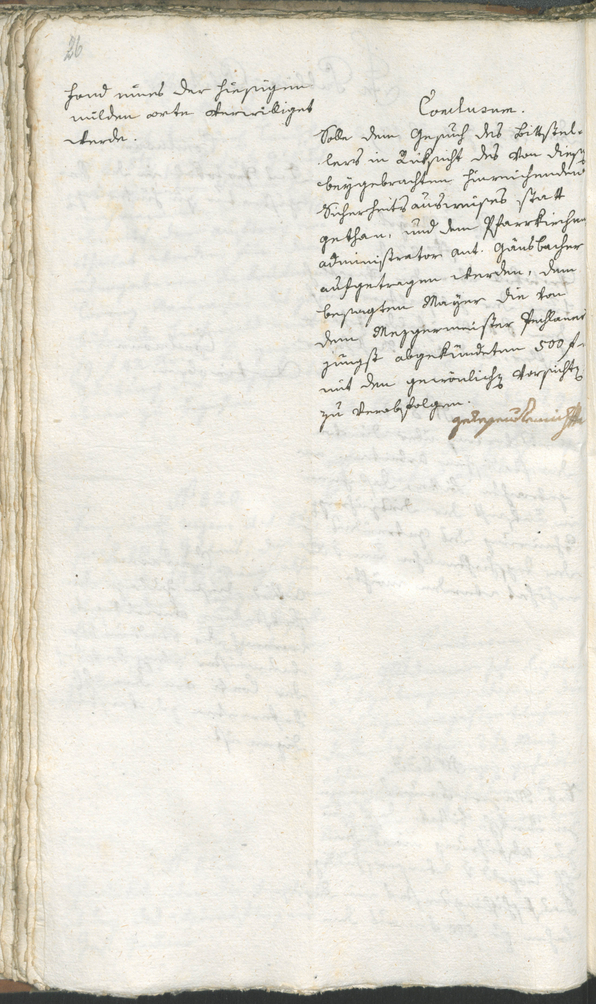 26
hand eines der hiesigen
milden orte verwilliget
werde.
Conclusum.
Solle dem Gesuch des Bittstel-
lers in Rüksicht des von diesem
beygebrachten hinreichenden
Sicherheitsausweises statt
gethan, und dem Pfarrkirchen
administrator Ant. Gänsbacher
aufgetragen werden, dem
besagten Mayer die von
dem Mezgermeister Pechlaner
jüngst abgekündeten 500 f
mit den gewönlichen Vorsichten
zu verabfolgen.